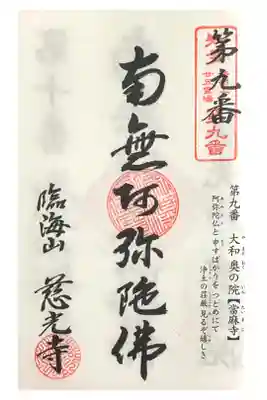 第九番
廿五霊場
九番
第九番 大和 奥の院【當麻寺】
阿弥陀仏と 申すばかりを つとめにて
浄土の荘厳 見るぞ嬉しき
南無阿弥陀佛
臨海山 慈光寺